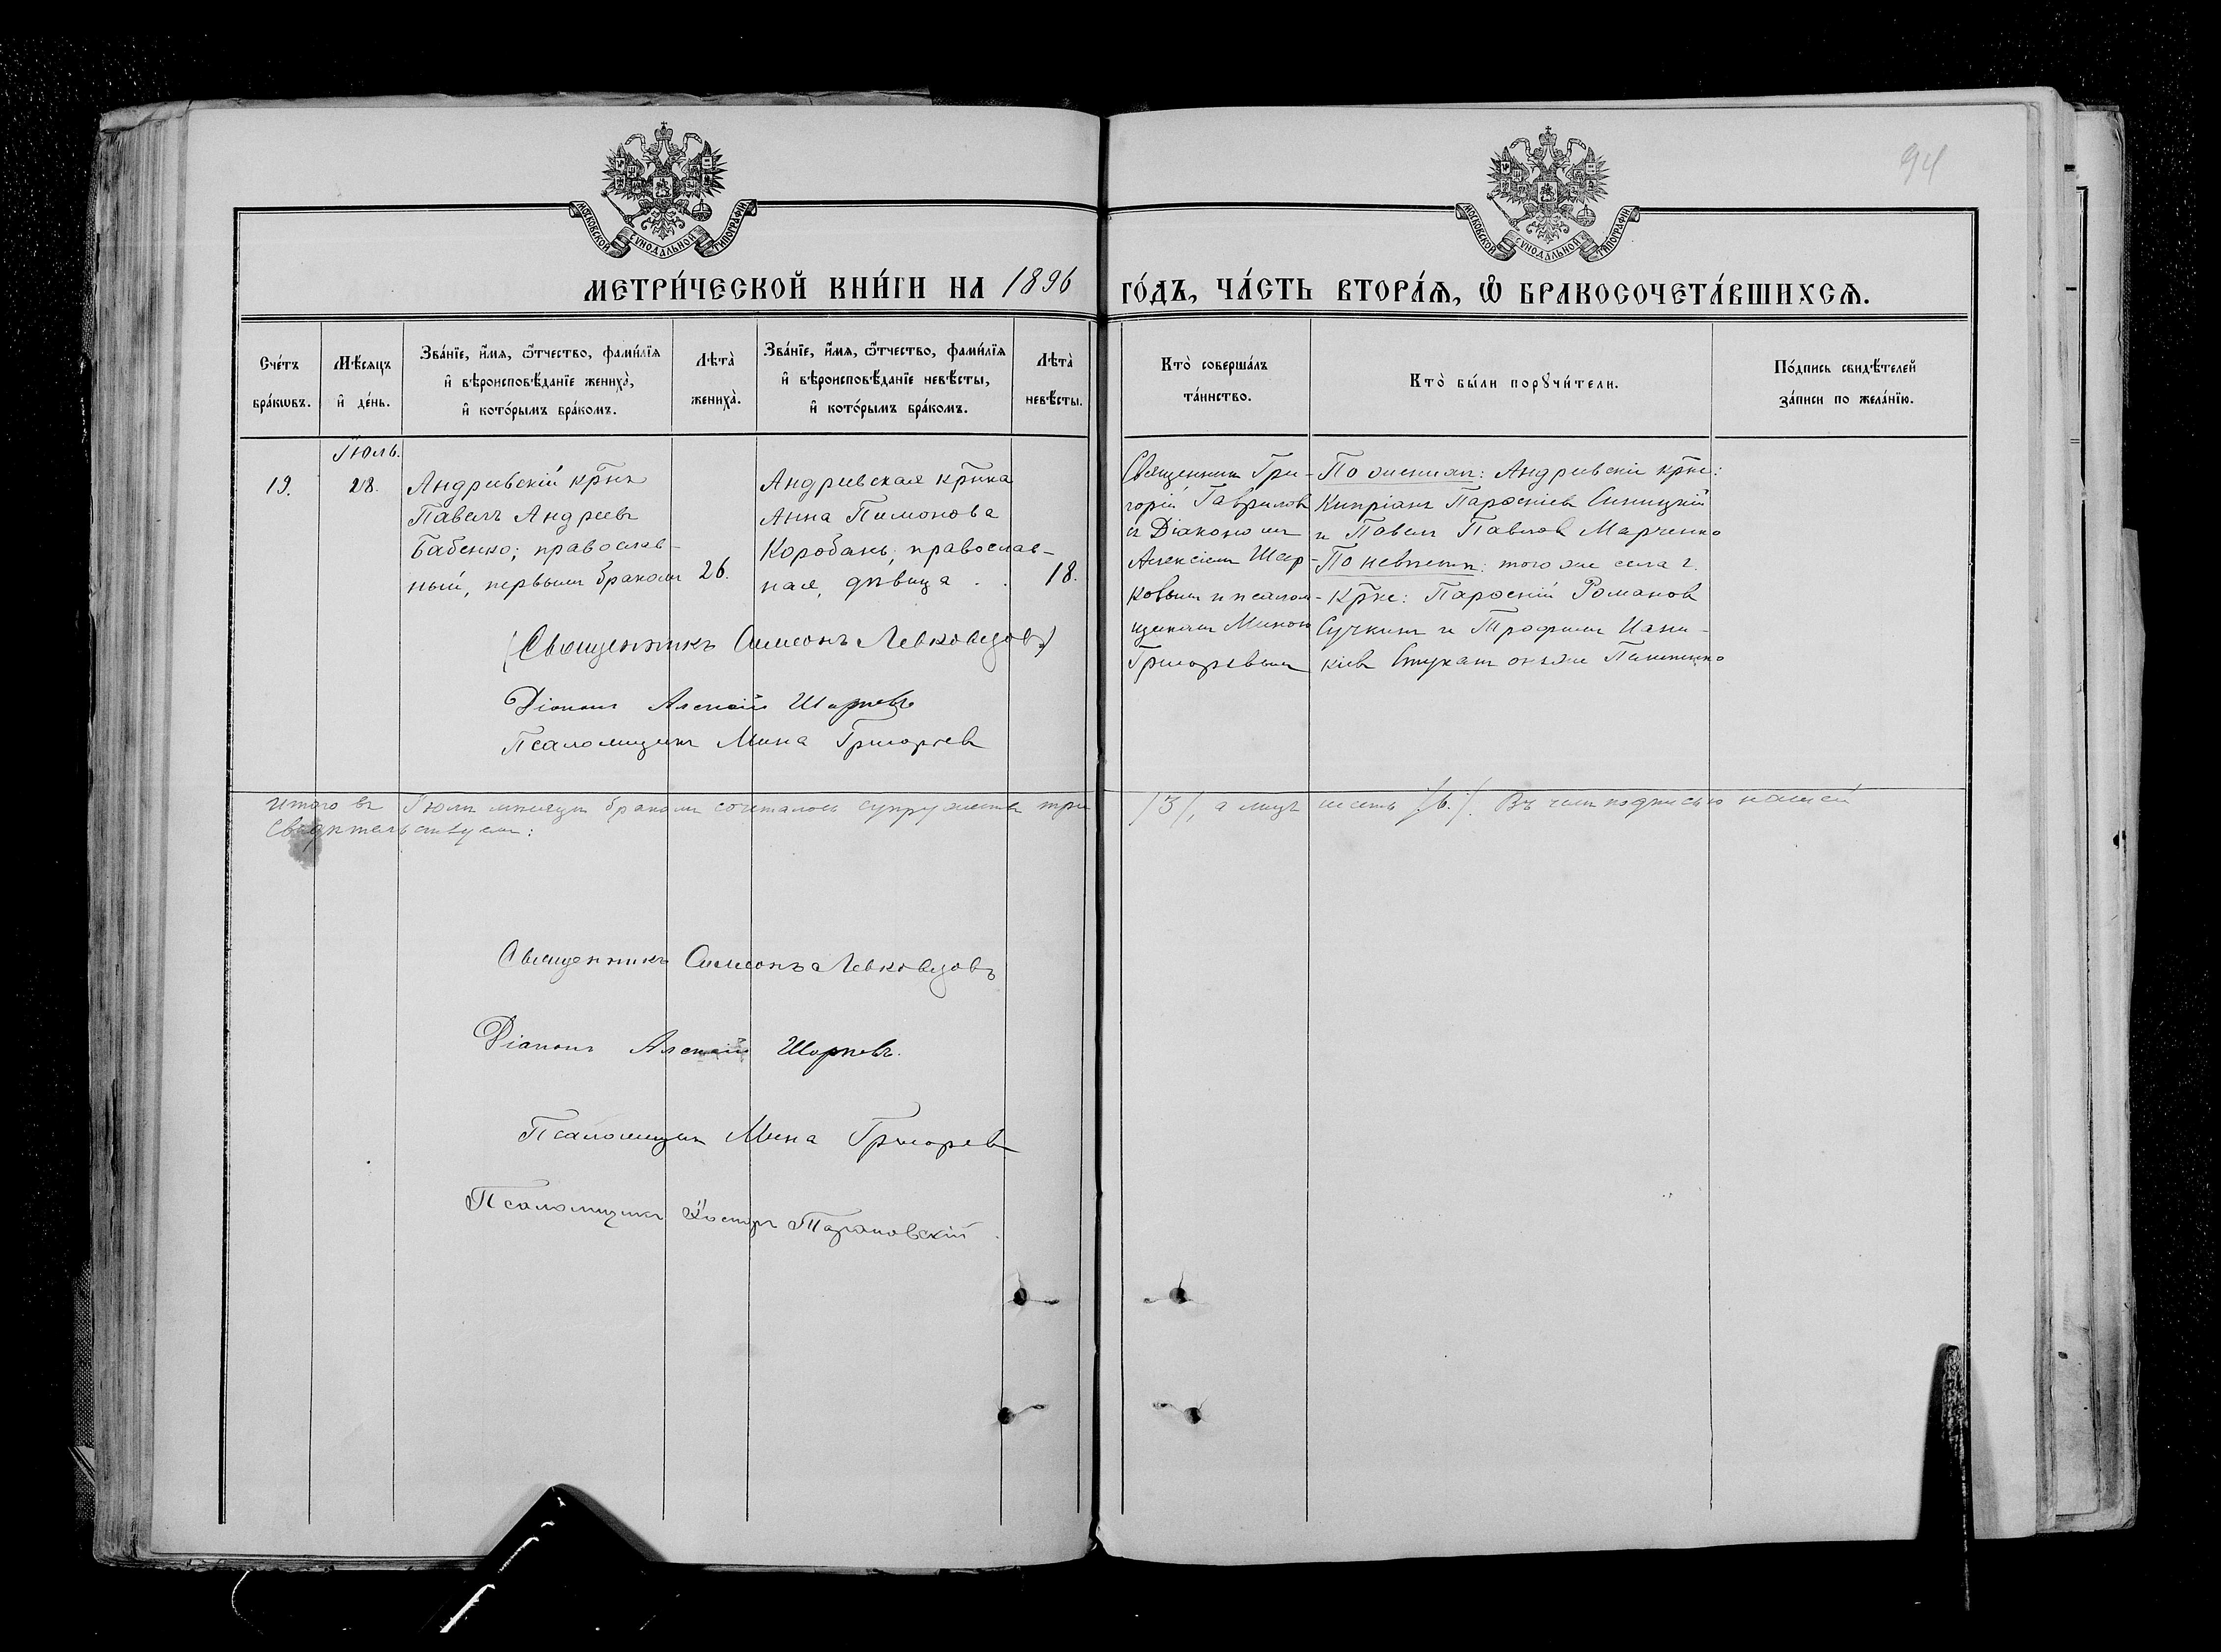 94
МОСКОВСКОЙ СѴНОДАЛЬНОЙ ТИПОГРАФІИ
МОСКОВСКОЙ СѴНОДАЛЬНОЙ ТИПОГРАФІИ
МЕТРИ́ЧЕСКОЙ КНИ́ГИ НА 1896 ГО́ДЪ, ЧА́СТЬ ВТОРА́Ѧ, Ѽ БРАКОСОЧЕТА́ВШИХСѦ.
Сче́тъ бра́кѡвъ.
Мѣ́сяцъ и де́нь.
Зва́нїе, и́мя, ѻ́тчество, фами́лїя
и вѣроисповѣ́данїе жениха̀,
и кото́рымъ бра́комъ.
Лѣта̀ жениха̀.
Зва́нїе, и́мя, ѻ́тчество, фами́лїя
и вѣроисповѣ́данїе невѣ́сты,
и кото́рымъ бра́комъ.
Лѣта̀ невѣ́сты.
Кто̀ соверша́лъ
та́инство.
Кто̀ бы́ли порꙋчи́тели.
По́дпись свидѣ́телей
за́писи по жела́нїю.
Іюль.
19.
28.
Андреевскій крнъ
Павелъ Андреевъ
Бабенко; православ-
ный, первымъ бракомъ
26.
Андреевская крнка
Анна Пимонова
Коробань; православ-
ная, дѣвица . .
18.
Священникъ Гри-
горій Гавриловъ
съ Діакономъ
Алексіемъ Шар-
ковымъ и псалом-
щикомъ Миною
Григорьевымъ
По женихѣ: Андреевскіе крне:
Кипріанъ Парѳеніевъ Синицкій
и Павелъ Павловъ Марченко
По невѣстѣ: того же села г.
крне: Парѳеній Романовъ
Сучкинъ и Трофимъ Іани-
кіевъ Стукань онъ же
(Священникъ Симеонъ Левковцовъ)
Діаконъ Алексій Шарковъ
Псаломщикъ Мина Григорьевъ
Итого въ Іюлѣ мѣсяцѣ бракомъ сочеталось супружествъ три /3/, а лицъ шесть /6./. Въ чемъ подписью нашей
свидѣтельствуемъ:
Священникъ Симеонъ Левковцовъ
Діаконъ Алексій Шарковъ.
Псаломщикъ Мина Григорьевъ
Псаломщикъ